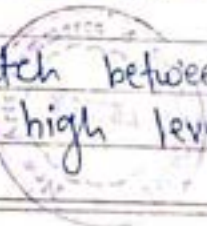 tch betwee
high lev